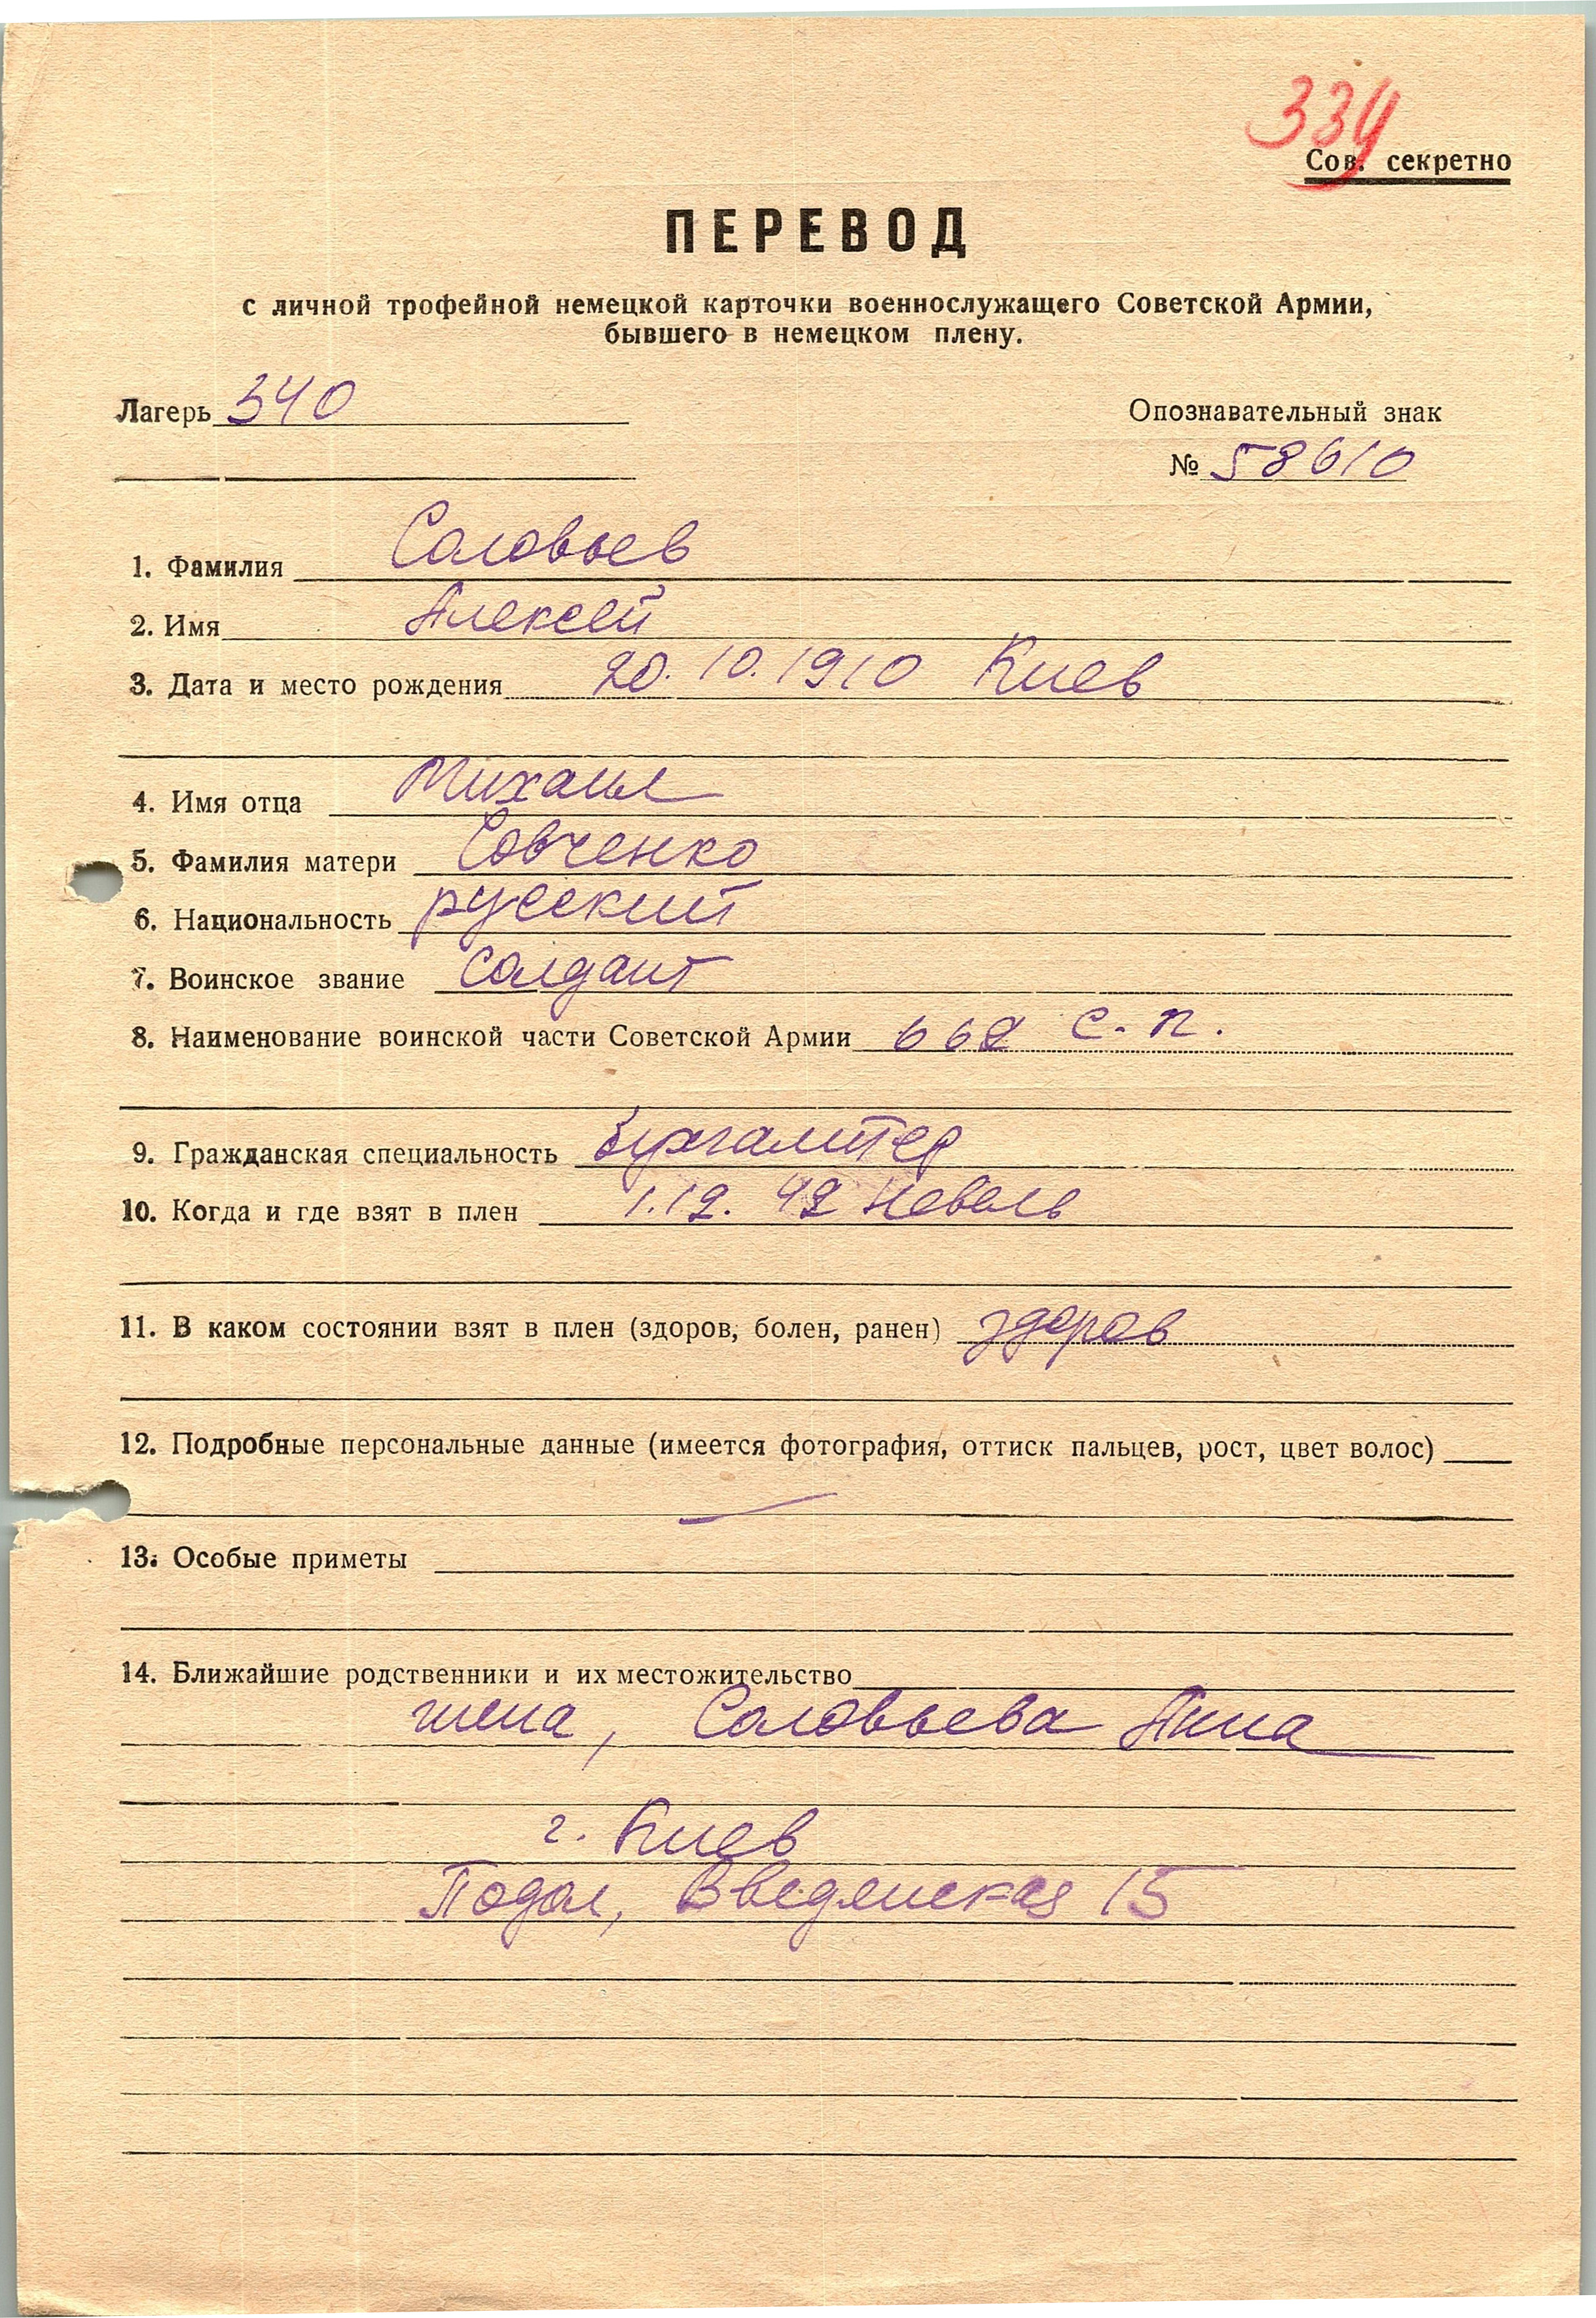 334
Сов. секретно
ПЕРЕВОД
с личной трофейной немецкой карточки военнослужащего Советской Армии,
бывшего в немецком плену.
Лагерь 340
Опознавательный знак
№ 58610
1. Фамилия Соловьев
2. Имя Алексей
3. Дата и место рождения 20.10.1910 Киев
4. Имя отца Михаил
5. Фамилия матери Совченко
6. Национальность русский
7. Воинское звание солдат
8. Наименование воинской части Советской Армии 662 с.п.
9. Гражданская специальность бухгалтер
10. Когда и где взят в плен 1.12.42 Невель
11. В каком состоянии взят в плен (здоров, болен, ранен) здоров
12. Подробные персональные данные (имеется фотография, оттиск пальцев, рост, цвет волос)
13. Особые приметы
14. Ближайшие родственники и их местожительство
жена, Соловьева Анна
г. Киев
Подол, Введенская 15